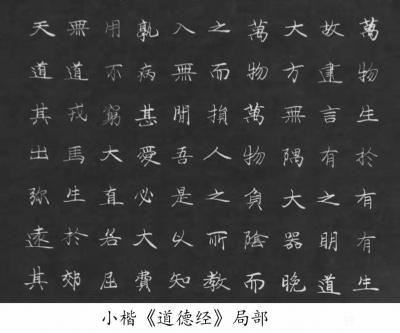 萬物生於有有生
故建言有之明道
大方無隅大器晚
萬物萬物負陰而
之而損人之所教
入無閒吾是以知
孰病甚愛必大費
用不窮大直各屈
無道戎馬生於郊
天道其出弥遠其
小楷《道德经》局部